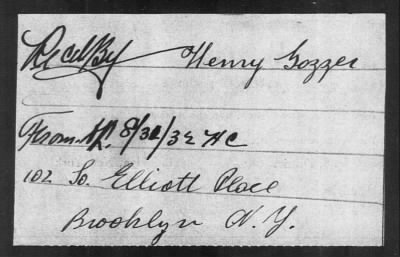 Rec'd By Henry Gozzer
From 8/31/32 HC
102 So. Elliott Place
Brooklyn N.Y.